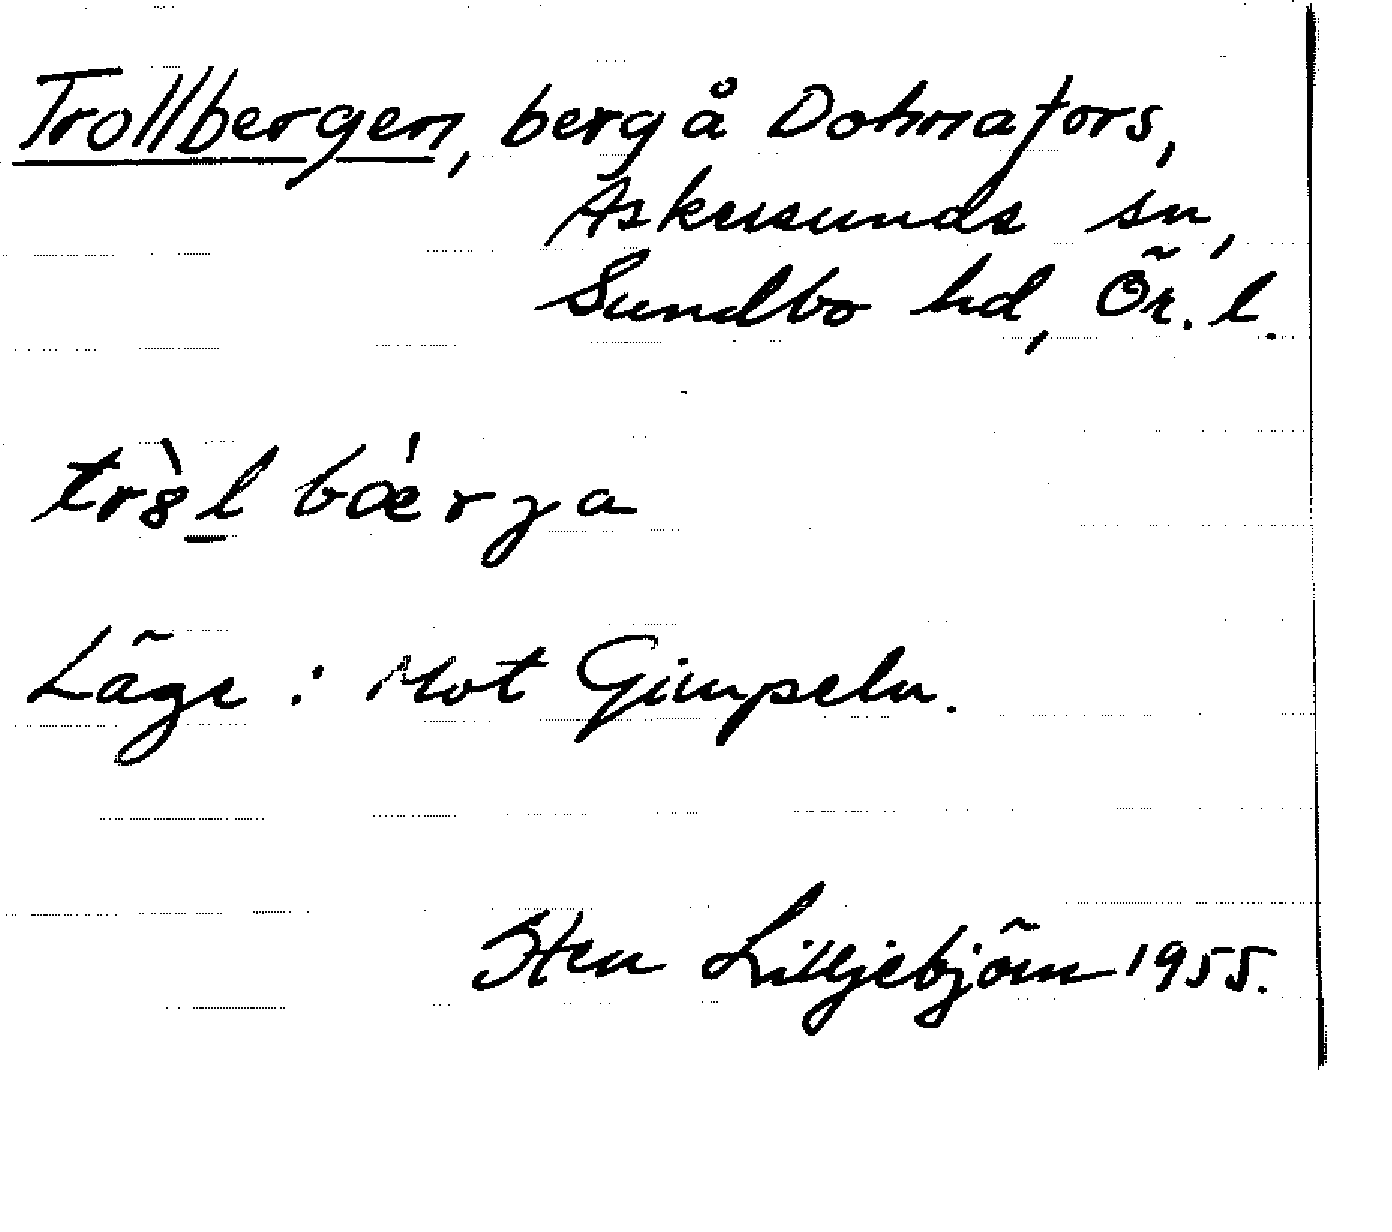 Trollbergen, berg å Dohnafors,
Askersunds sn,
Sundbo hd, Ör. l.
tr8̀l bǽrga
Läge: Mot Gimpeln.
Sten Lilljebjörn 1955.